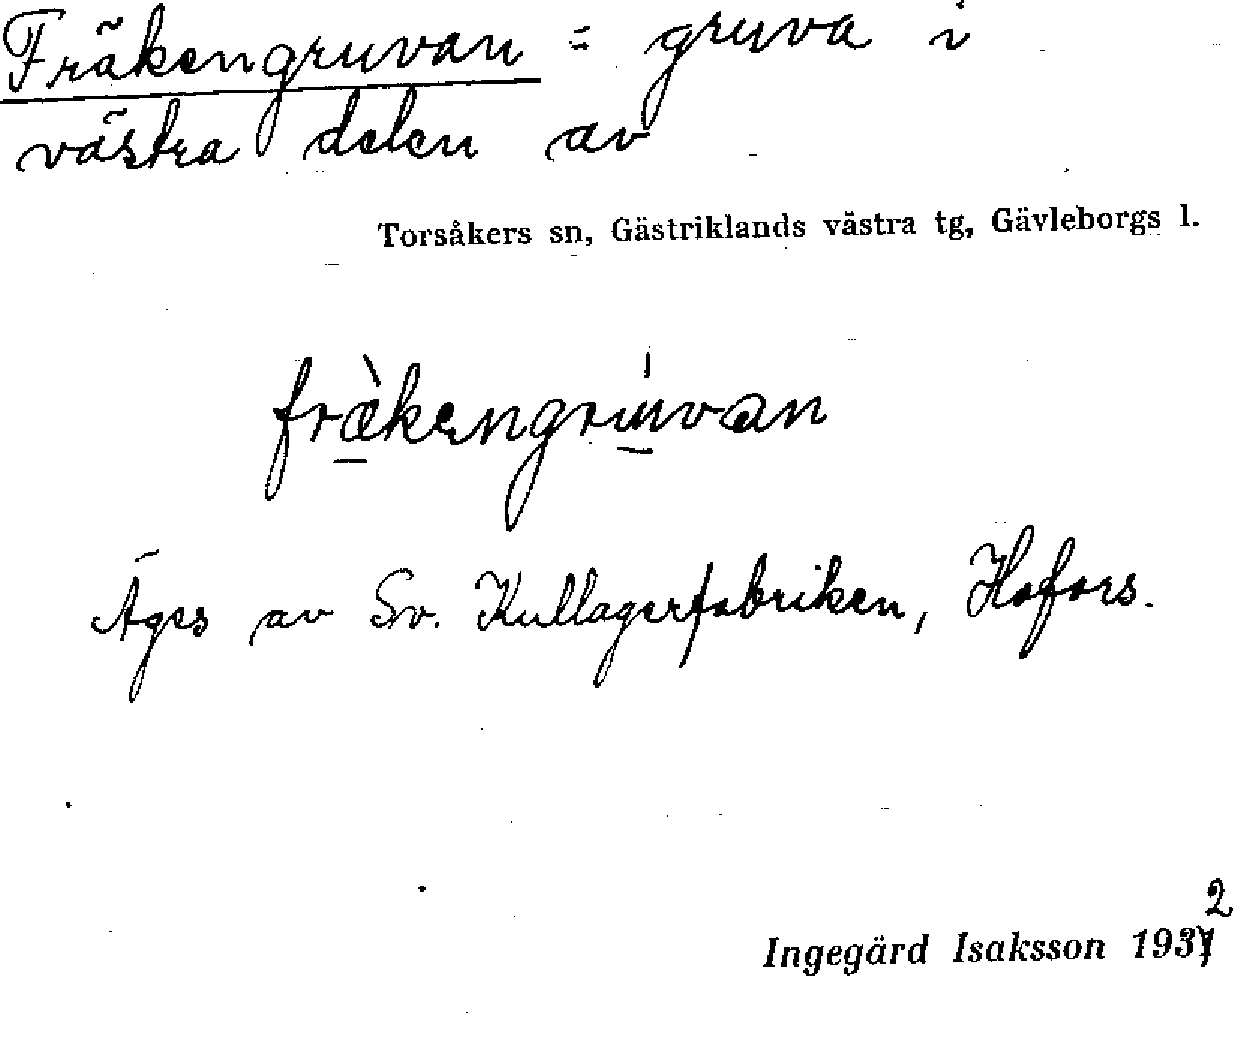 Fräkengruvan = gruva i
västra delen av
Torsåkers sn, Gästriklands västra tg, Gävleborgs l.
fræ̀kengrúvan
Äges av Sv. Kullagerfabriken, Hofors.
2
Ingegärd Isaksson 1931